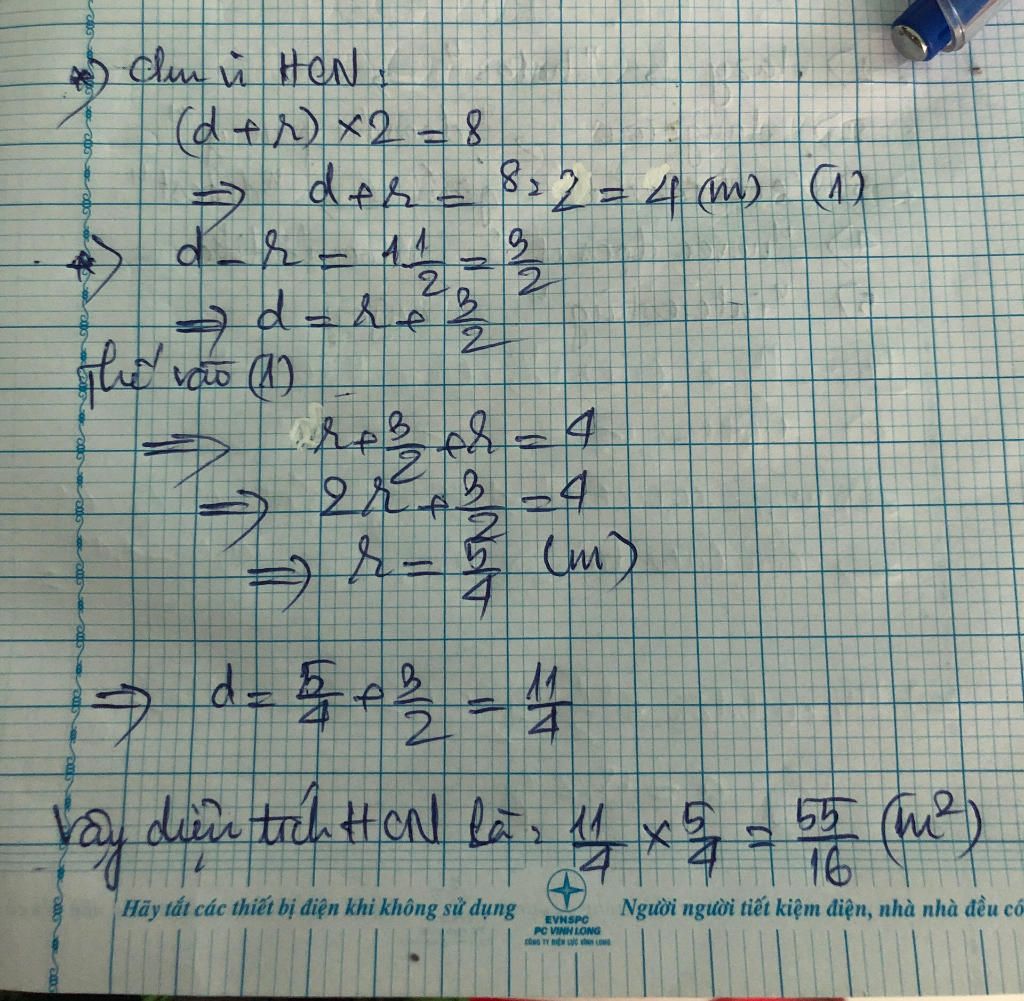 *) Chu vi HCN:
(d + r) × 2 = 8
⇒ d + r = 8 : 2 = 4 (m) (1)
*) d - r = 1 1/2 = 3/2
⇒ d = r + 3/2
Thế vào (1)
⇒ r + 3/2 + r = 4
⇒ 2r + 3/2 = 4
⇒ r = 5/4 (m)
⇒ d = 5/4 + 3/2 = 11/4
Vậy diện tích HCN là: 11/4 × 5/4 = 55/16 (m²)
Hãy tắt các thiết bị điện khi không sử dụng
EVNSPC
PC VINH LONG
CÔNG TY ĐIỆN LỰC VĨNH LONG
Người người tiết kiệm điện, nhà nhà đều có